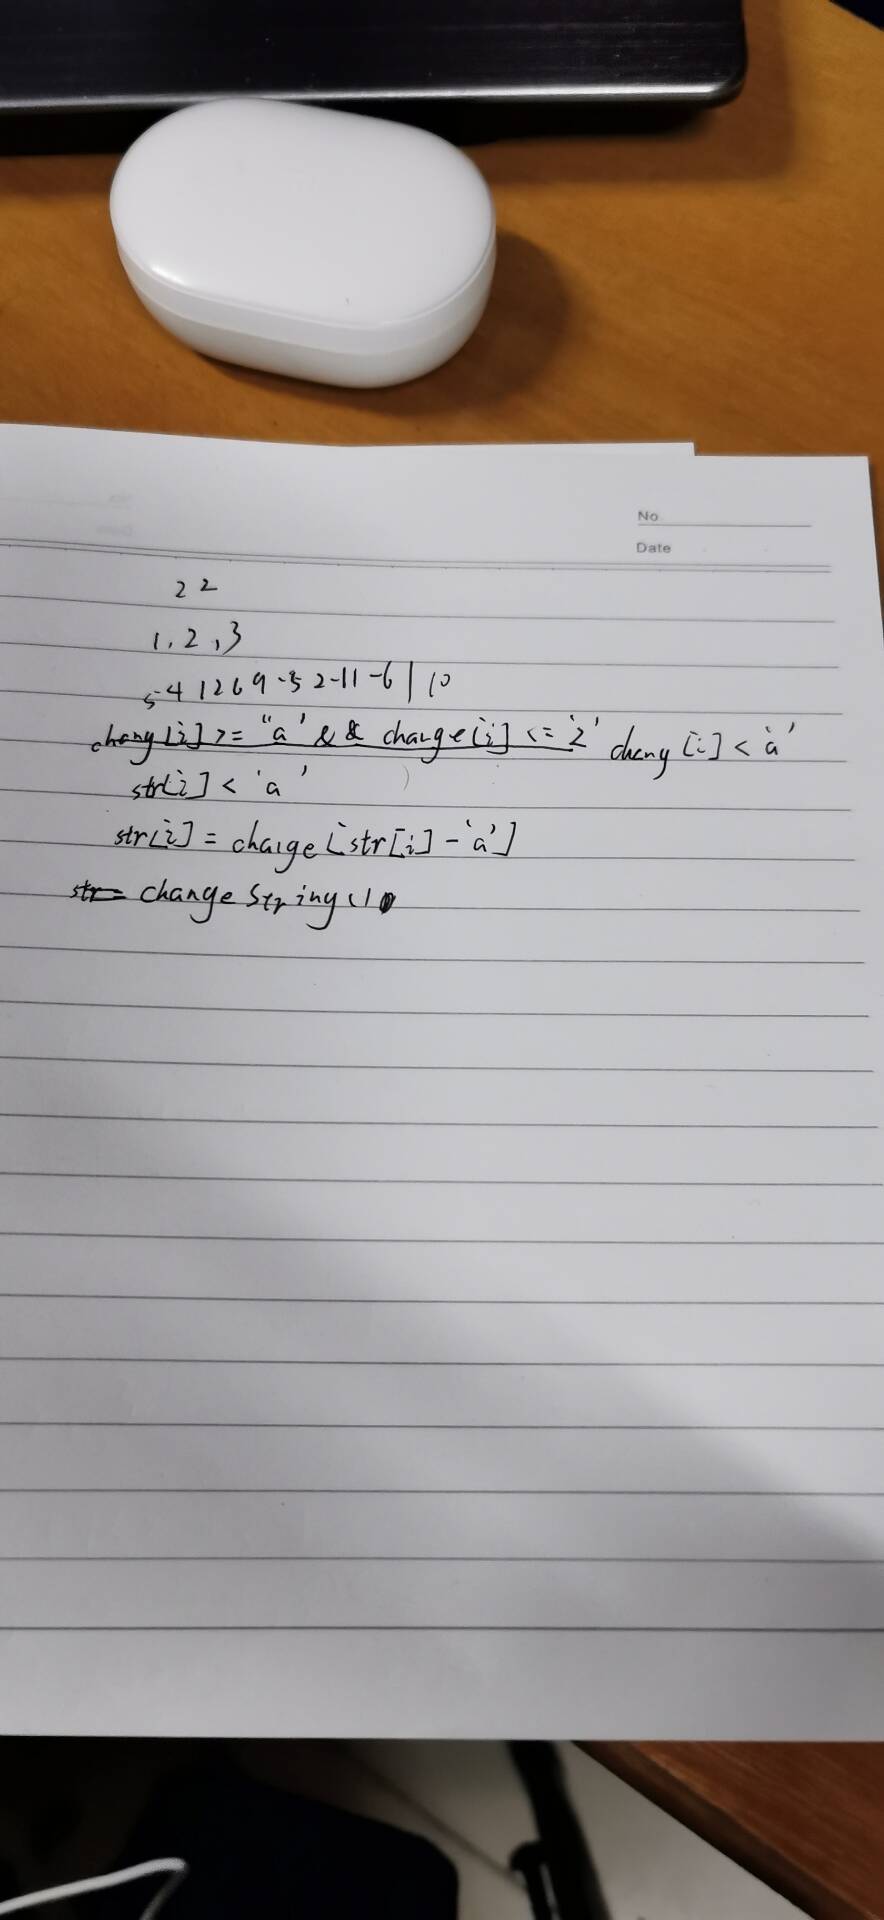 No
Date
2 2
1, 2, 3
5-4 1269-52-11-6| 10
chang[i] >= "a' && change[i] <= 'z' chang[i] < 'a'
str[i] < 'a'
str[i] = change[str[i] - 'a']
str= changeString()